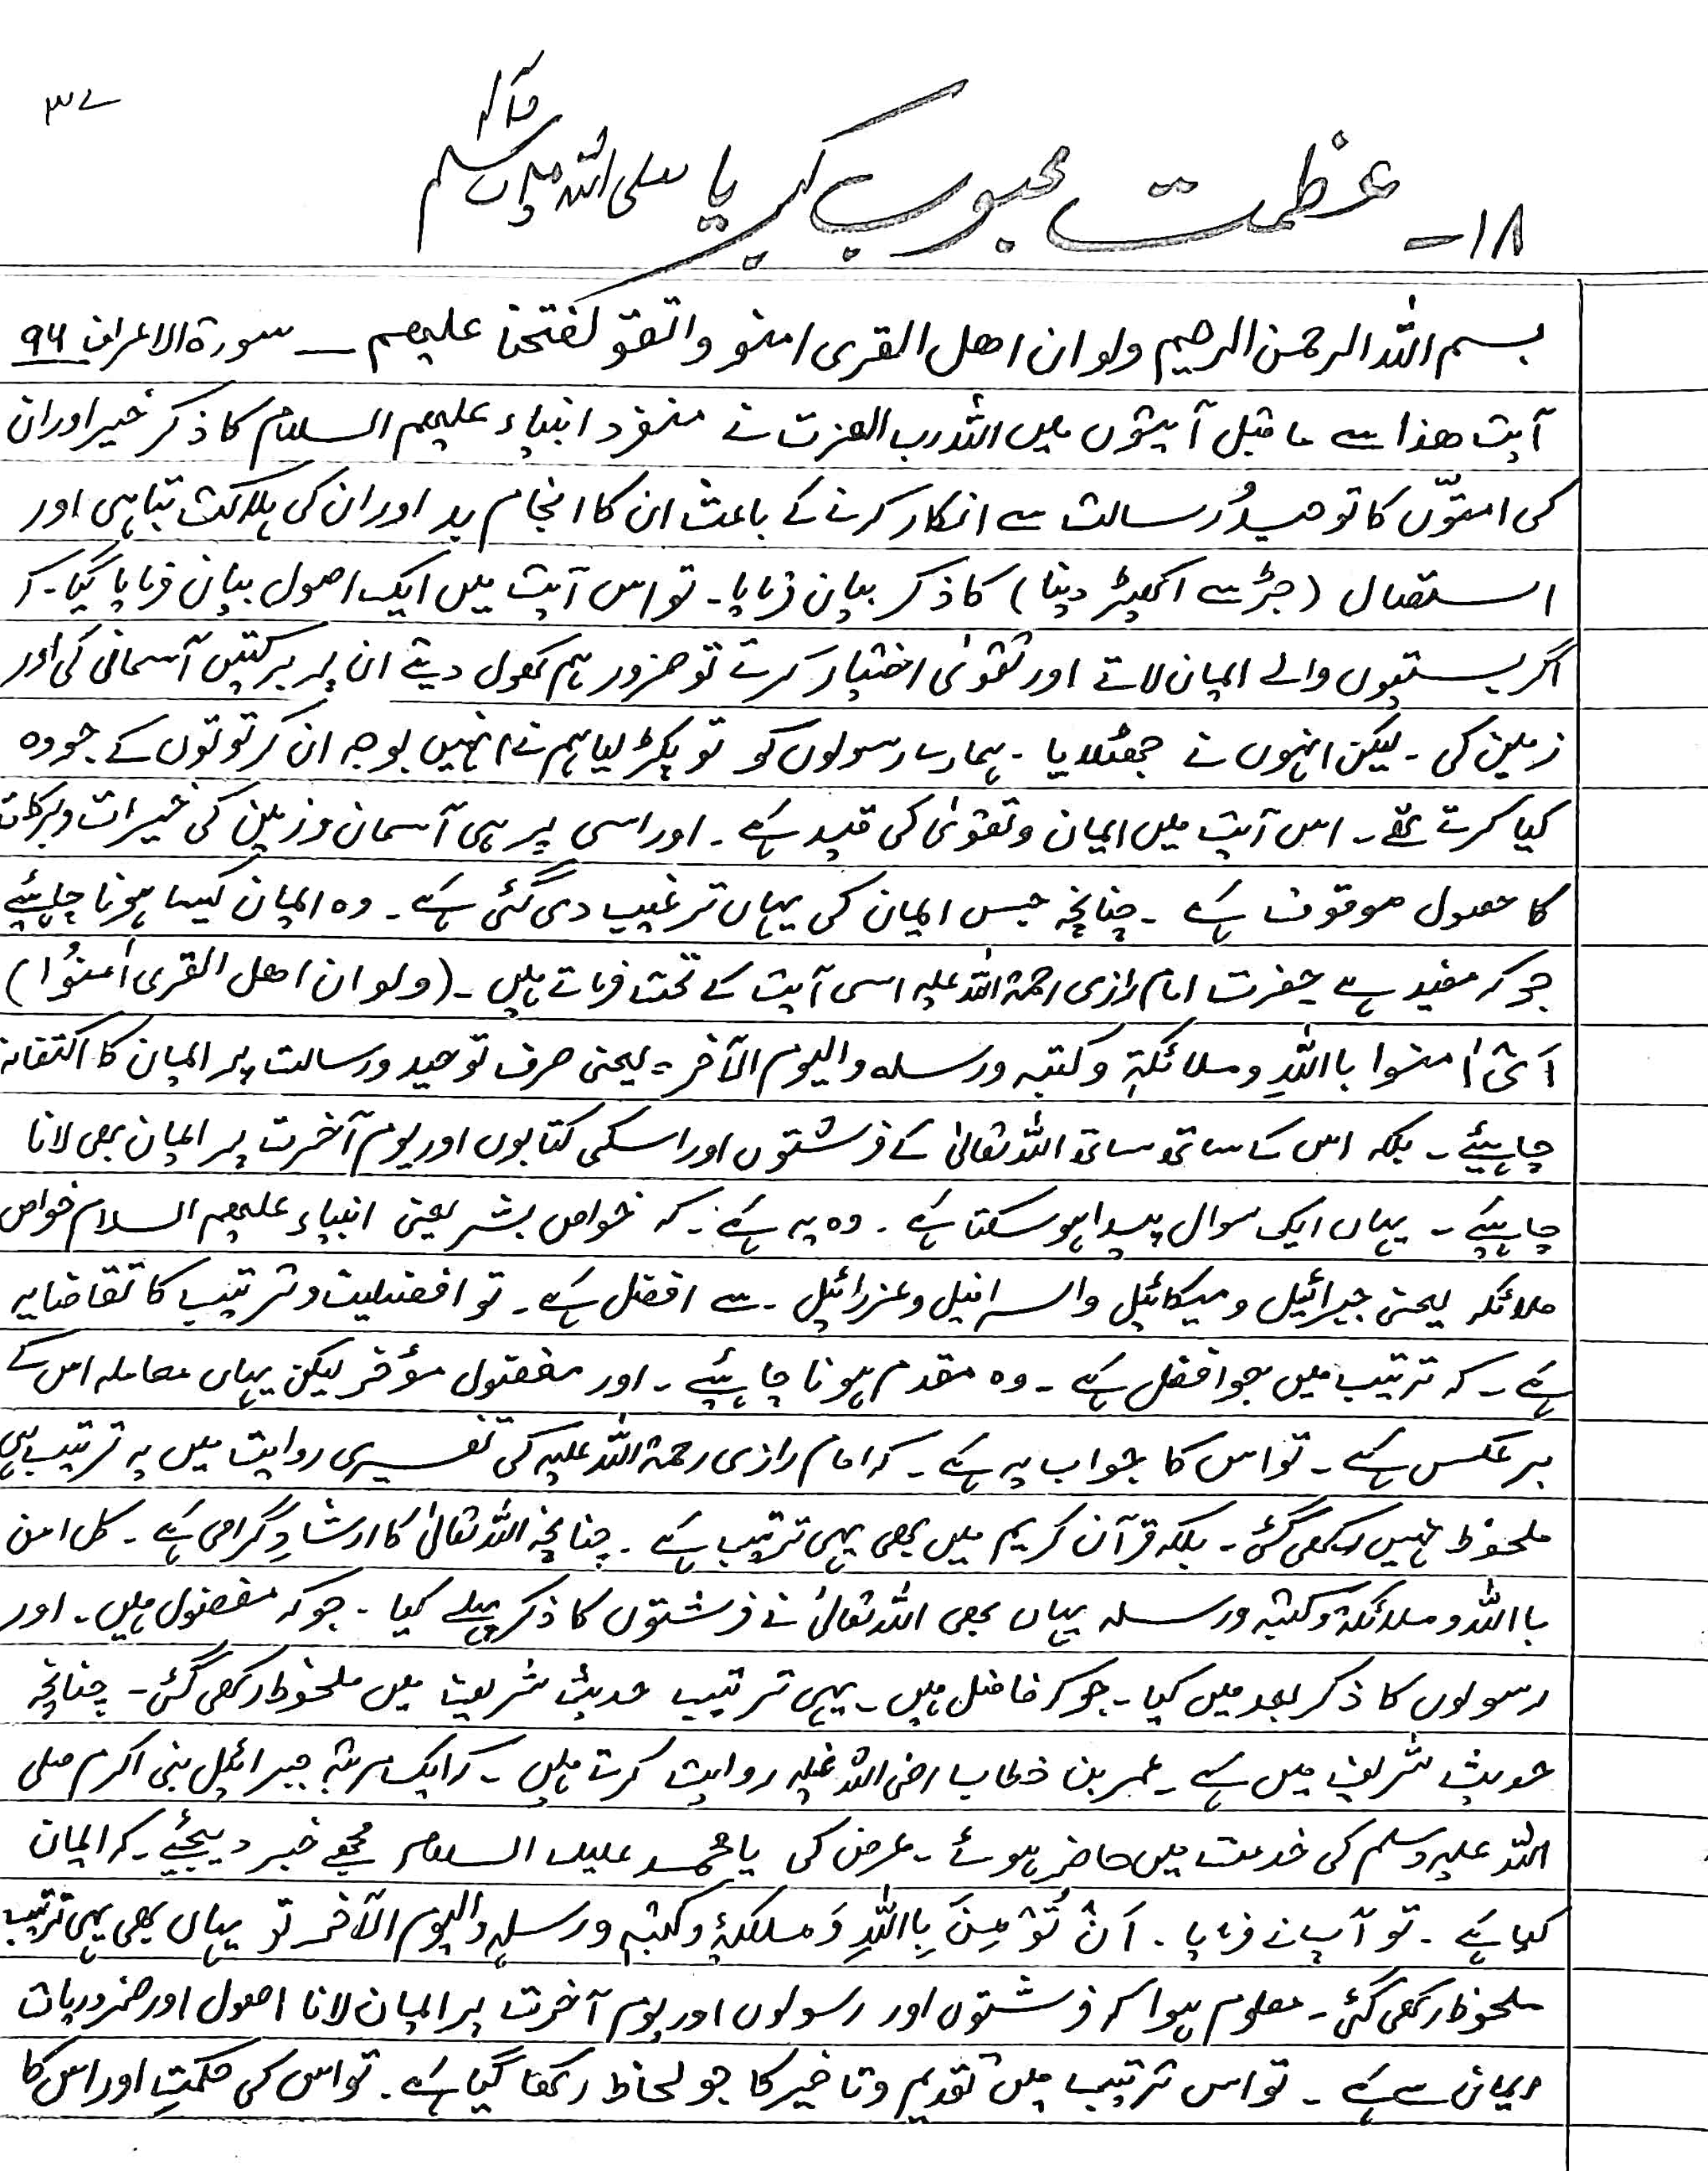 ۳۷
۱۸- عظمت محبوب کبریا صلی اللہ علیہ وآلہ وسلم
بسم اللہ الرحمن الرحیم ولو ان اهل القری امنو واتقو لفتحنا علیهم — سورۃ الاعراف ۹۶
آیت ھذا سے ماقبل آیتوں میں اللہ رب العزت نے منفرد انبیاء علیھم السلام کا ذکر خیر اور ان
کی امتوّں کا توحید و رسالت سے انکار کرنے کے باعث ان کا انجام بد اور ان کی ہلاکت تباہی اور
استصال (جڑ سے اکھیڑ دینا) کا ذکر بیان فرمایا۔ تو اس آیت میں ایک اصول بیان فرمایا گیا۔ کہ
اگر بستیوں والے ایمان لاتے اور تقویٰ اختیار کرتے تو ضرور ہم کھول دیتے ان پر برکتیں آسمانی کی اور
زمین کی۔ لیکن انہوں نے جھٹلایا۔ ہمارے رسولوں کو تو پکڑ لیا ہم نے انہیں بوجہ ان کرتوتوں کے جو وہ
کیا کرتے تھے۔ اس آیت میں ایمان و تقویٰ کی قید ہے۔ اور اسی پر ہی آسمان و زمین کی خیرات و برکات
کا حصول موقوف ہے۔ چنانچہ جس ایمان کی یہاں ترغیب دی گئی ہے۔ وہ ایمان کیسا ہونا چاہئیے
جو کہ مفید ہے حضرت امام رازی رحمۃ اللہ علیہ اسی آیت کے تحت فرماتے ہیں۔ (ولو ان اهل القری اٰمنُوا)
اَیْ اٰمنوا بااللہِ وملائکۃ وکتبہ ورسلہ والیوم الآخر۔ یعنی صرف توحید و رسالت پر ایمان کا اکتفا نہ
چاہیئے۔ بلکہ اس کے ساتھ ساتھ اللہ تعالیٰ کے فرشتوں اور اسکی کتابوں اور یوم آخرت پر ایمان بھی لانا
چاہیئے۔ یہاں ایک سوال پیدا ہو سکتا ہے۔ وہ یہ ہے۔ کہ خواص بشر یعنی انبیاء علیھم السلام خواص
ملائکہ یعنی جبرائیل و میکائیل و اسرافیل و عزرائیل۔ سے افضل ہے۔ تو افضلیت و ترتیب کا تقاضا یہ
ہے۔ کہ ترتیب میں جو افضل ہے۔ وہ مقدم ہونا چاہئیے۔ اور مفضول مؤخر لیکن یہاں معاملہ اس کے
برعکس ہے۔ تو اس کا جواب یہ ہے۔ کہ امام رازی رحمۃ اللہ علیہ کی تفسیری روایت میں یہ ترتیب ہی
ملحوظ نہیں رکھی گئی۔ بلکہ قرآن کریم میں بھی یہی ترتیب ہے۔ چنانچہ اللہ تعالیٰ کا ارشادِ گرامی ہے۔ کل امن
بااللہ وملائکۃ وکتبہ ورسلہ یہاں بھی اللہ تعالیٰ نے فرشتوں کا ذکر پہلے کیا۔ جو کہ مفضول ہیں۔ اور
رسولوں کا ذکر بعد میں کیا۔ جو کہ فاضل ہیں۔ یہی ترتیب حدیث شریف میں ملحوظ رکھی گئی۔ چنانچہ
حدیث شریف میں ہے۔ عمر بن خطاب رضی اللہ عنہ روایت کرتے ہیں۔ کہ ایک مرتبہ جبرائیل نبی اکرم صلی
اللہ علیہ وسلم کی خدمت میں حاضر ہوئے۔ عرض کی یا محمد علیک السلام مجھے خبر دیجئے۔ کہ ایمان
کیا ہے۔ تو آپ نے فرمایا۔ اَنْ تُوْمِنَ بِااللہِ وَملٰئکۃٖ وکتبہٖ ورسلہٖ والیوم الآخر تو یہاں بھی یہی ترتیب
ملحوظ رکھی گئی۔ معلوم ہوا کہ فرشتوں اور رسولوں اور یوم آخرت پر ایمان لانا اصول اور ضروریات
ایمان سے ہے۔ تو اس ترتیب میں تقدیم و تاخیر کا جو لحاظ رکھا گیا ہے۔ تو اس کی حکمتِ اور اس کا